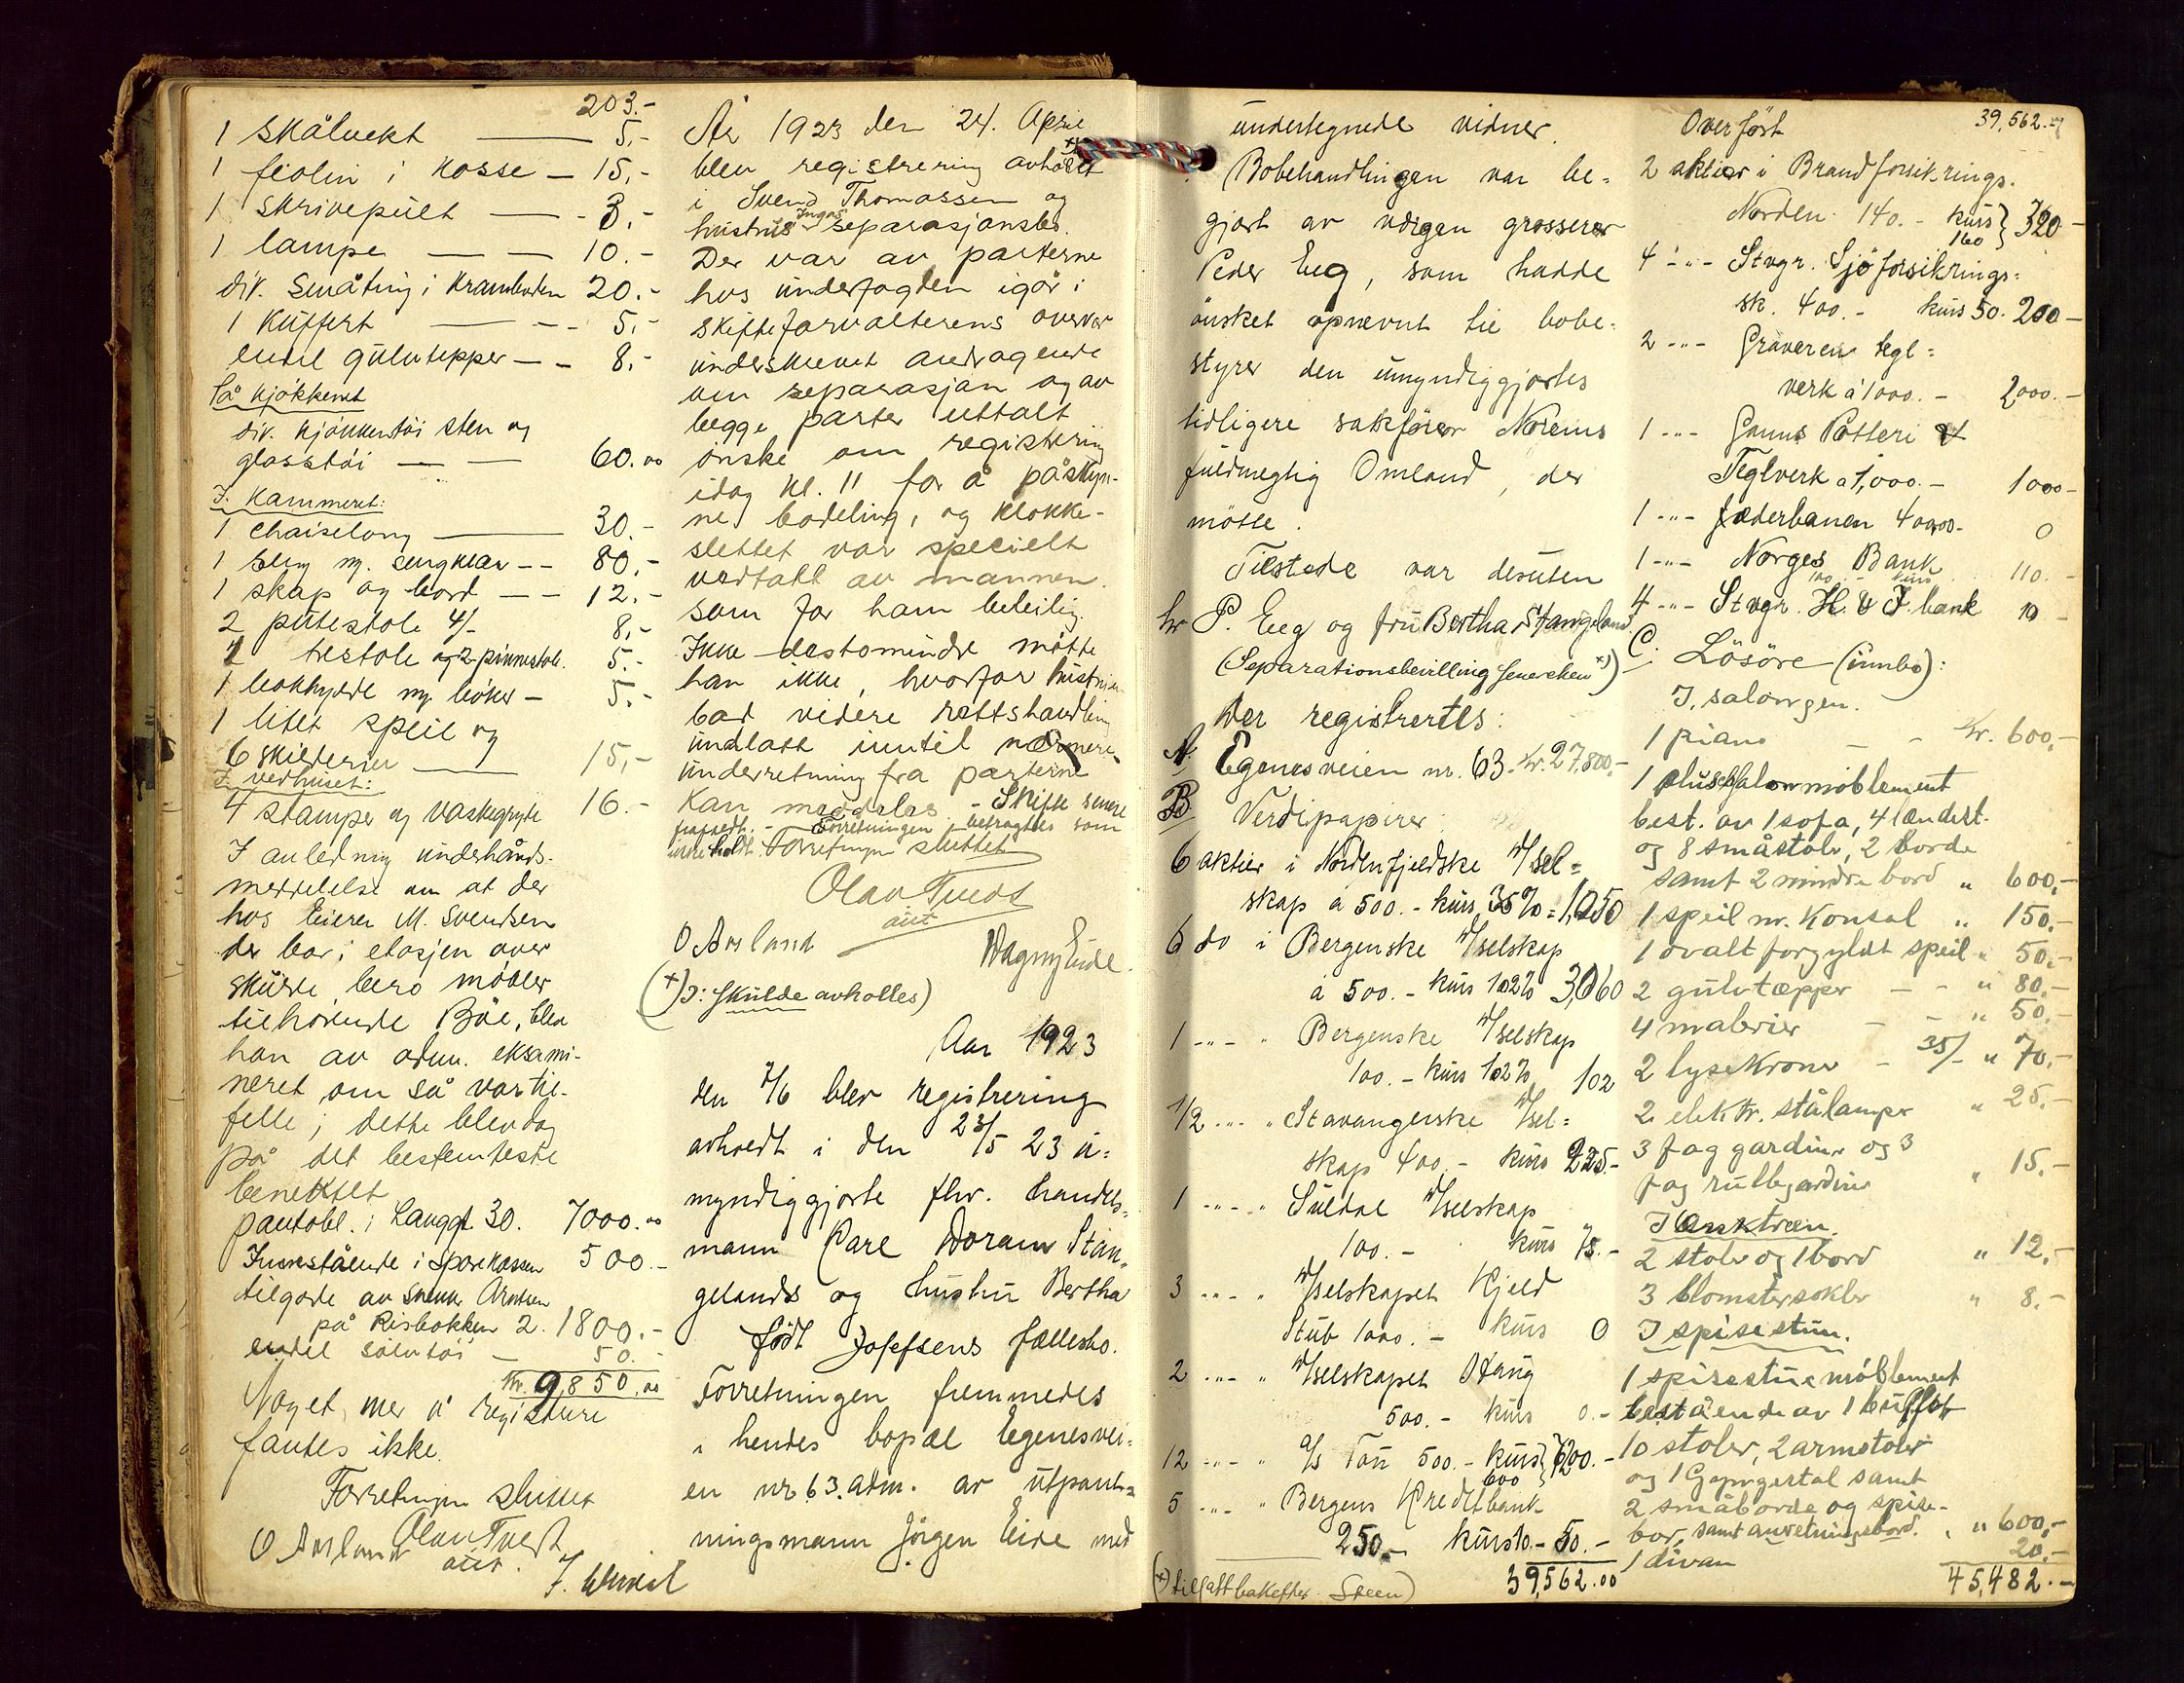 203.-
1 skålvekt — 5.-
1 fiolin i kasse — 15,-
1 skrivepult — 3.-
1 lampe — — 10.-
div. småting i Kramboden 20.-
1 Kuffert — - - 5,-
endel gulvtepper — - 8,-
På kjøkkenet
div. kjøkkentøi sten og
glasstøi — — 60.00
I. Kammeret:
1 chaiselong — 30.-
1 seng m. sengklær - - 80.-
1 skap og bord — - 12.-
2 putestole 4/- 8,-
2 trestole og 2 pinnestole. 5.-
1 bokhylde m. bøker — 5.-
1 litet speil og
6 skilderier — 15,-
I vedhuset:
4 stamper og vaskegryte 16.-
I anledning underhånds-
meddelelse om at der
hos Eieren M. Svendsen
der bor i etasjen over
skulde bero møbler
tilhørende Bøe, blev
han av adm. eksami-
neret om så var til-
felle; dette blev dog
på det bestemteste
benektet
pantobl. i Langgt. 30. 7000.00
Innestående i Sparekassen 500.-
tilgode av Arntsen
på Risbakken 2. 1800.-
endel sølvtøi — 50.-
Kr. 9,850.00
Noget mer å registrere
fantes ikke.
Forretningen sluttet
O Aasland Olav Tvedt
aut.
År 1923 den 24. April
blev registrering avholdt x)
i Svend Thomassen og
hustrus Ingas separasjonsbo.
Der var av parterne
hos underfogden igår i
skifteforvalterens overvær
underskrevet andragende
om separasjon og av
begge parter uttalt
ønske om registrering
idag kl. 11 for å påskyn-
ne bodeling, og klokke-
slettet var specielt
vedtatt av mannen
som for ham beleilig.
Ikke destomindre møtte
han ikke, hvorfor hustruen
bad videre rettshandling
undlatt inntil nærmere
underretning fra parterne
kan meddeles. - Skifte senere
frafaldt. - Forretningen betragtes som
ikke holdt. Forretningen sluttet
Olav Tvedt
aut
O Aasland Dagny Eide.
(x) ɔ: skulde avholles)
Aar 1923
den 7/6 blev registrering
avholdt i den 23/5 23 u-
myndiggjorte fhv. handels-
mann Carl Doram Stan-
gelands og hustru Bertha
født Josefsens fællesbo.
Forretningen fremmedes
i hendes bopæl Egenesvei-
en nr 63. adm. av utpant-
ningsmann Jørgen Eide med
undertegnede vidner.
Bobehandlingen var be-
gjært av værgen grosserer
Peder Eeg, som hadde
ønsket opnevnt til bobe-
styrer den umyndiggjortes
tidligere sakfører Noreius
fuldmegtig Omland, der
møtte.
Tilstede var desuten
hr P. Eeg og fru Bertha Stangeland
(Separationsbevilling senere x))
Der registrertes:
A. Egenesveien nr. 63. Kr. 27,800.-
B. Verdipapirer
6 aktier i Nordenfjeldske D/sel-
skap a 500.- kurs 35% = 1,050
6 do i Bergenske D/selskap
a 500.- kurs 102% 3,060
1 - - - " Bergenske D/selskap
100.- kurs 102% 102
1/2 - - - " Stavangerske D/sel-
skap 400.- kurs 225.-
1 - - - " Suldal D/selskap
100.- kurs 75.-
3 - - - " D/selskapet Kjeld
Stub 1000.- kurs 0
2 - - - " D/selskapet Haug
500.- kurs 0.-
12 - - - " A/s Tou 500.- kurs 600 } 7200.-
5 - - - " Bergens Kreditbank
250.- kurs 10.- 50.-
39,562.00
(x) tilsatt bakefter. Steen)
Overført 39,562.-
2 aktier i Brandforsikrings.
Norden 140.- kurs 160 } 320.-
4 - " - Stvgr. Sjøforsikrings-
sk. 400.- kurs 50. 200.-
2 - " - Graveren tegl-
verk à 1000.- 2000.-
1 - " - Ganns Potteri &
Teglverk a 1,000.- 1000-
1 - " - Jæderbanen 400,00- 0
1 - " - Norges Bank 110.-
100.- kurs
4 - " - Stvgr. H. & I. bank 10 -
C. Løsøre (innbo):
I. salongen.
1 piano — - Kr. 600,-
1 plusch salonmøblement
best. av 1 sofa, 4 lændest.
og 8 småstole, 2 borde
samt 2 mindre bord " 600,-
1 speil m. Konsol " 150.-
1 ovalt forgyldt speil " 50.-
2 gulvtæpper — - " 80.-
4 malerier — - " 50.-
2 lysekroner - 35/- " 70.-
2 elektr. stålamper " 25.-
3 fag gardiner og 3
fag rullegardiner " 15.-
2 stoler og 1 bord " 12.-
3 blomstersokler " 8.-
I spisestuen.
1 spisestuemøblement
bestående av 1 buffet
10 stoler, 2 armstoler
og 1 Gyngestol samt
2 småborde og spise-
bor, samt anretningsbord. " 600,-
1 divan 20.-
45,482.-